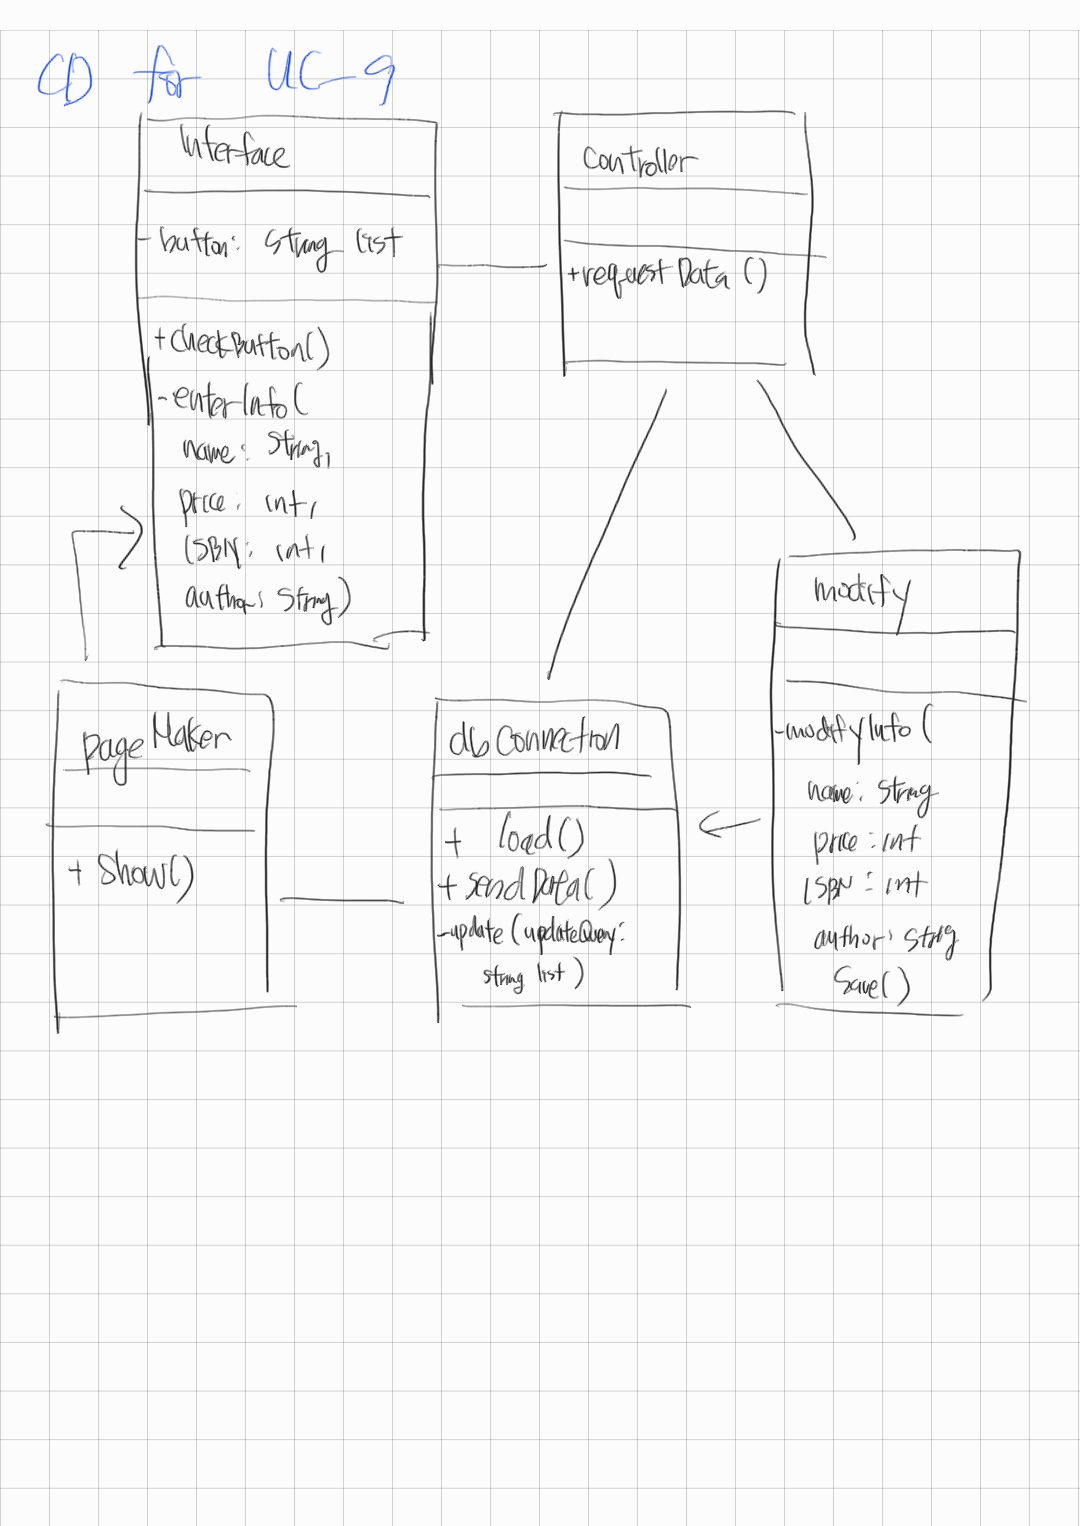 CD for UC-9
Interface
- button: String list
+ checkButton()
- enterInfo(
name: String,
price: int,
ISBN: int,
author: String)
Controller
+ requestData ()
modify
- modifyInfo (
name: String
price: int
ISBN: int
author: String
Save()
page Maker
+ Show()
db Connection
+ load()
+ sendData()
- update (updateQuery:
string list)